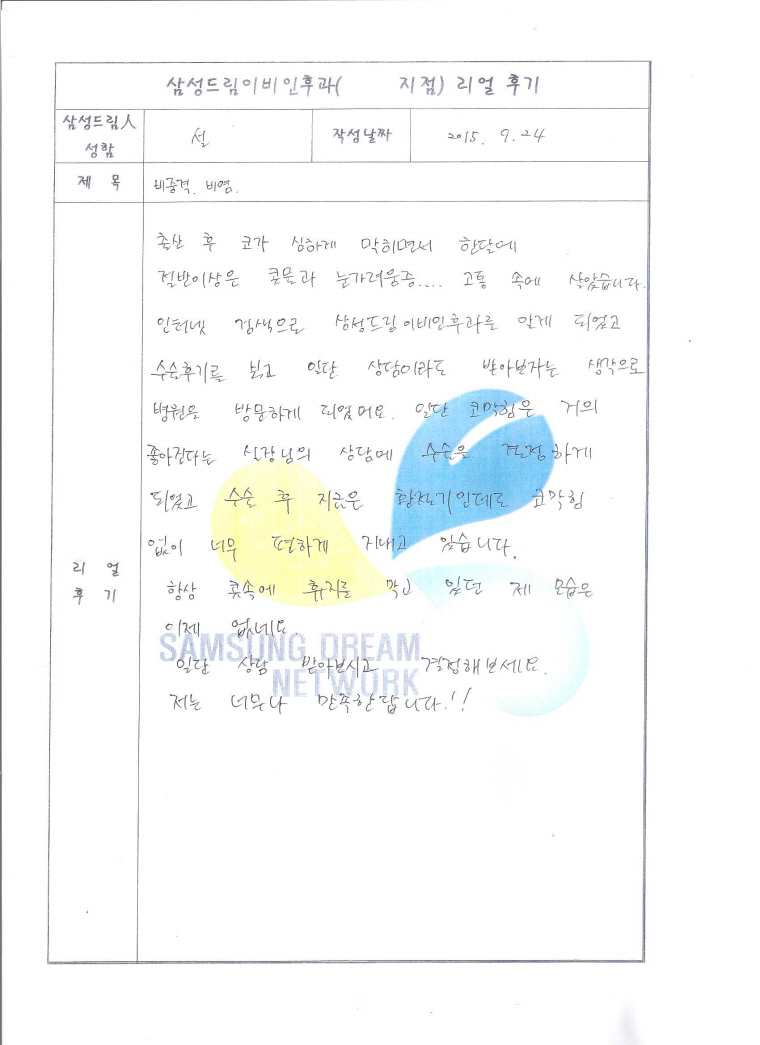 삼성드림이비인후과( 지점) 리얼 후기
삼성드림人 성함
설
작성날짜
2015. 9. 24
제 목
비중격. 비염.
리 얼 후 기
출산 후 코가 심하게 막히면서 한달에
절반이상은 콧물과 눈가려움증.... 고통 속에 살았습니다.
인터넷 검색으로 삼성드림이비인후과를 알게 되었고
수술후기를 보고 일단 상담이라도 받아보자는 생각으로
병원은 방문하게 되었어요. 일단 코막힘은 거의
좋아진다는 실장님의 상담에 수술을 결정하게
되었고 수술 후 지금은 환절기인데도 코막힘
없이 너무 편하게 지내고 있습니다.
항상 콧속에 휴지를 막고 있던 제 모습은
이제 없네요.
SAMSUNG DREAM
일단 상담 받아보시고 결정해보세요.
NETWORK
저는 너무나 만족한답니다.!!